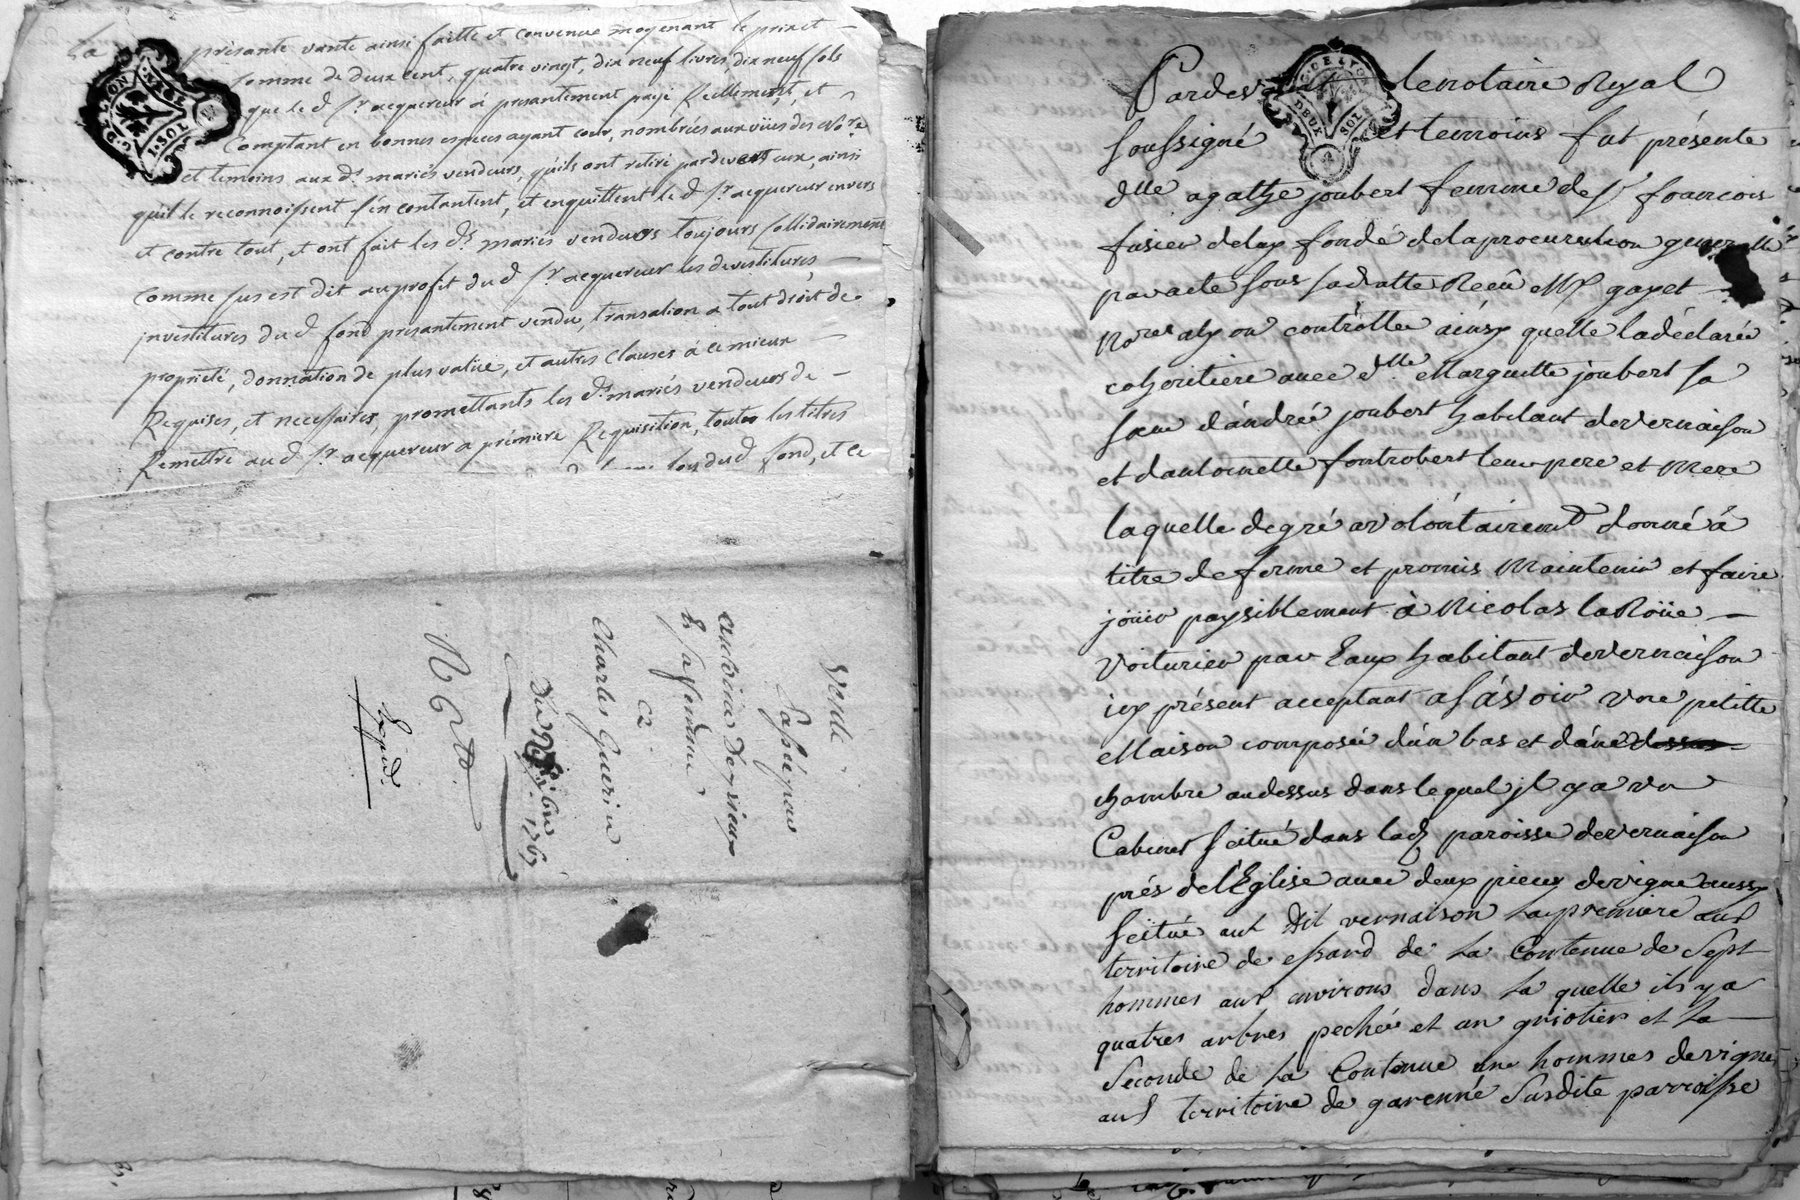 La présante vante ainsi faitte et convenue moyenant le prix et
somme de deux cent, quatre vingt, dix neuf livres, dix neuf sols
que le d. Sr. acquereur a présantement payé Reellement, et
comptant en bonnes especes ayant cour, nombrées aux vües des No.re
et temoins aux ds. mariés vendeurs, qu'ils ont retiré pardevert eux, ainsi
qu'il le reconnoissent s'en contantent, et enquittent le d. Sr. acquereur envers
et contre tout, et ont fait les ds. mariés vendeurs toujours sollidairement
comme sus est dit au profit du d. Sr. acquereur les devestitures,
investitures du d. fond présantement vendu, transation a tout droit de
proprieté, donnation de plus valüe, et autres clauses à ce mieux
Requises, et necessaires, promettants les ds. mariés vendeurs de
Remettre au d. Sr. acquereur a prémiere Requisition, toutes les titres
du d. fond, et ce
G. DE LYON
1. SOL
Vente
passée par
sa femme
a
Charles Guerin
1767
Exped.
G. DE LYON
DEUX SOLS
Pardevant le notaire Royal
soussigné et temoins fut présente
dlle agathe joubert femme de Sr francois
fusier deluy fondé de la procuration generalle
par acte sous sa datte Recû Me gayet
Nore alyon controllé ainsy quelle la déclaré
cohoritiere avec dlle Marguitte joubert sa
sœur d'andré joubert habitant de vernaison
et dantoinette fontrobert leur pere et Mere
laquelle de gré a volontairemt donné à
titre de ferme et promis Maintenir et faire
joüir paysiblement à Nicolas la Roüe
voiturier par Eaux habitant de vernaison
icy présent acceptant a sásvoir une petitte
Maison composée d'un bas et d'une
chambre au dessus dans lequel jl y a un
Cabinet scitué dans lad. paroisse de vernaison
prés de l'Eglise avec deux pieces de vigne aussy
scitué aud. dit vernaison la premiere aud
territoire de de la Contenue de Sept
hommes aud environs dans la quelle ils y a
quatres arbres pechés et un griotier et la
Seconde de la Contenue une hommes de vigne
aud territoire de garenne Susdite parroisse